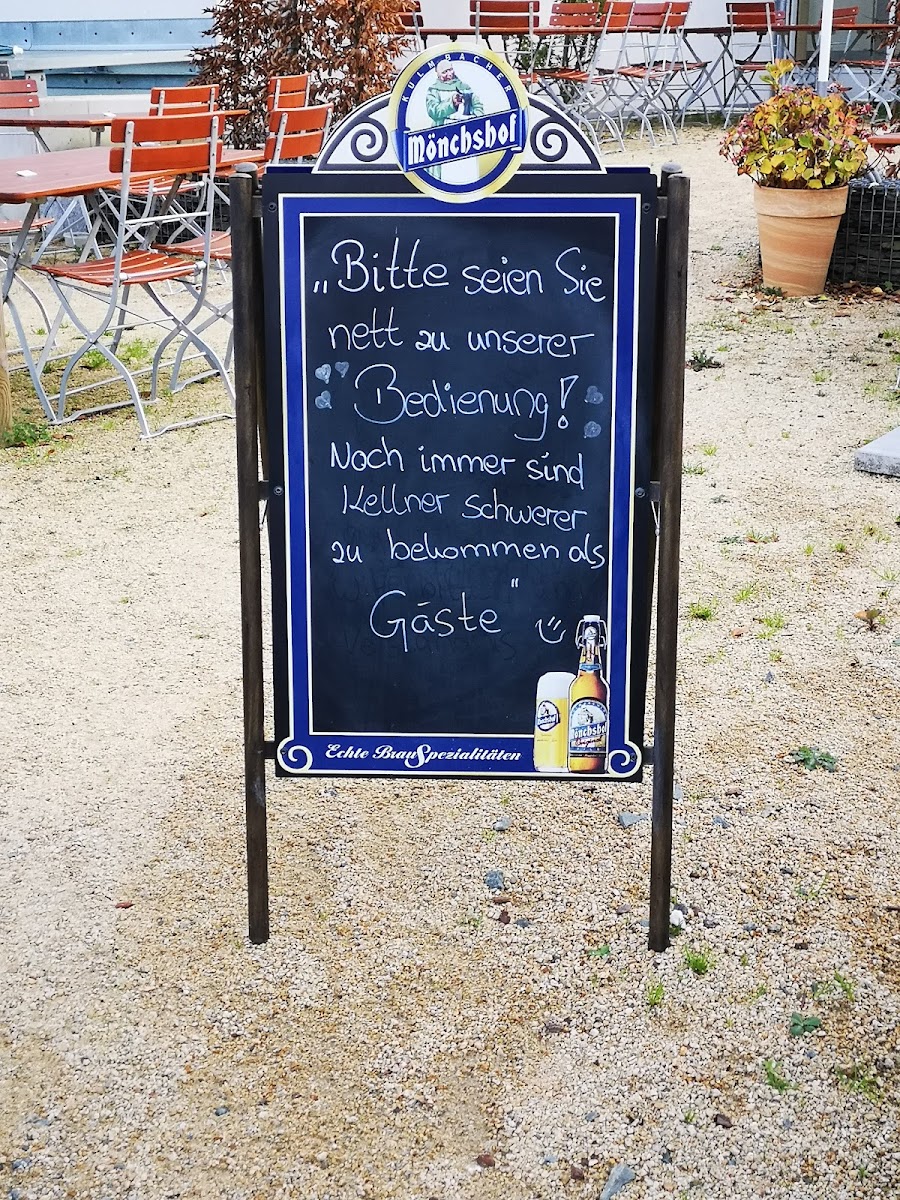 KULMBACHER
Mönchshof
„Bitte seien Sie
nett zu unserer
Bedienung!
Noch immer sind
Kellner schwerer
zu bekommen als
Gäste“
Mönchshof
Mönchshof
Echte BrauSpezialitäten